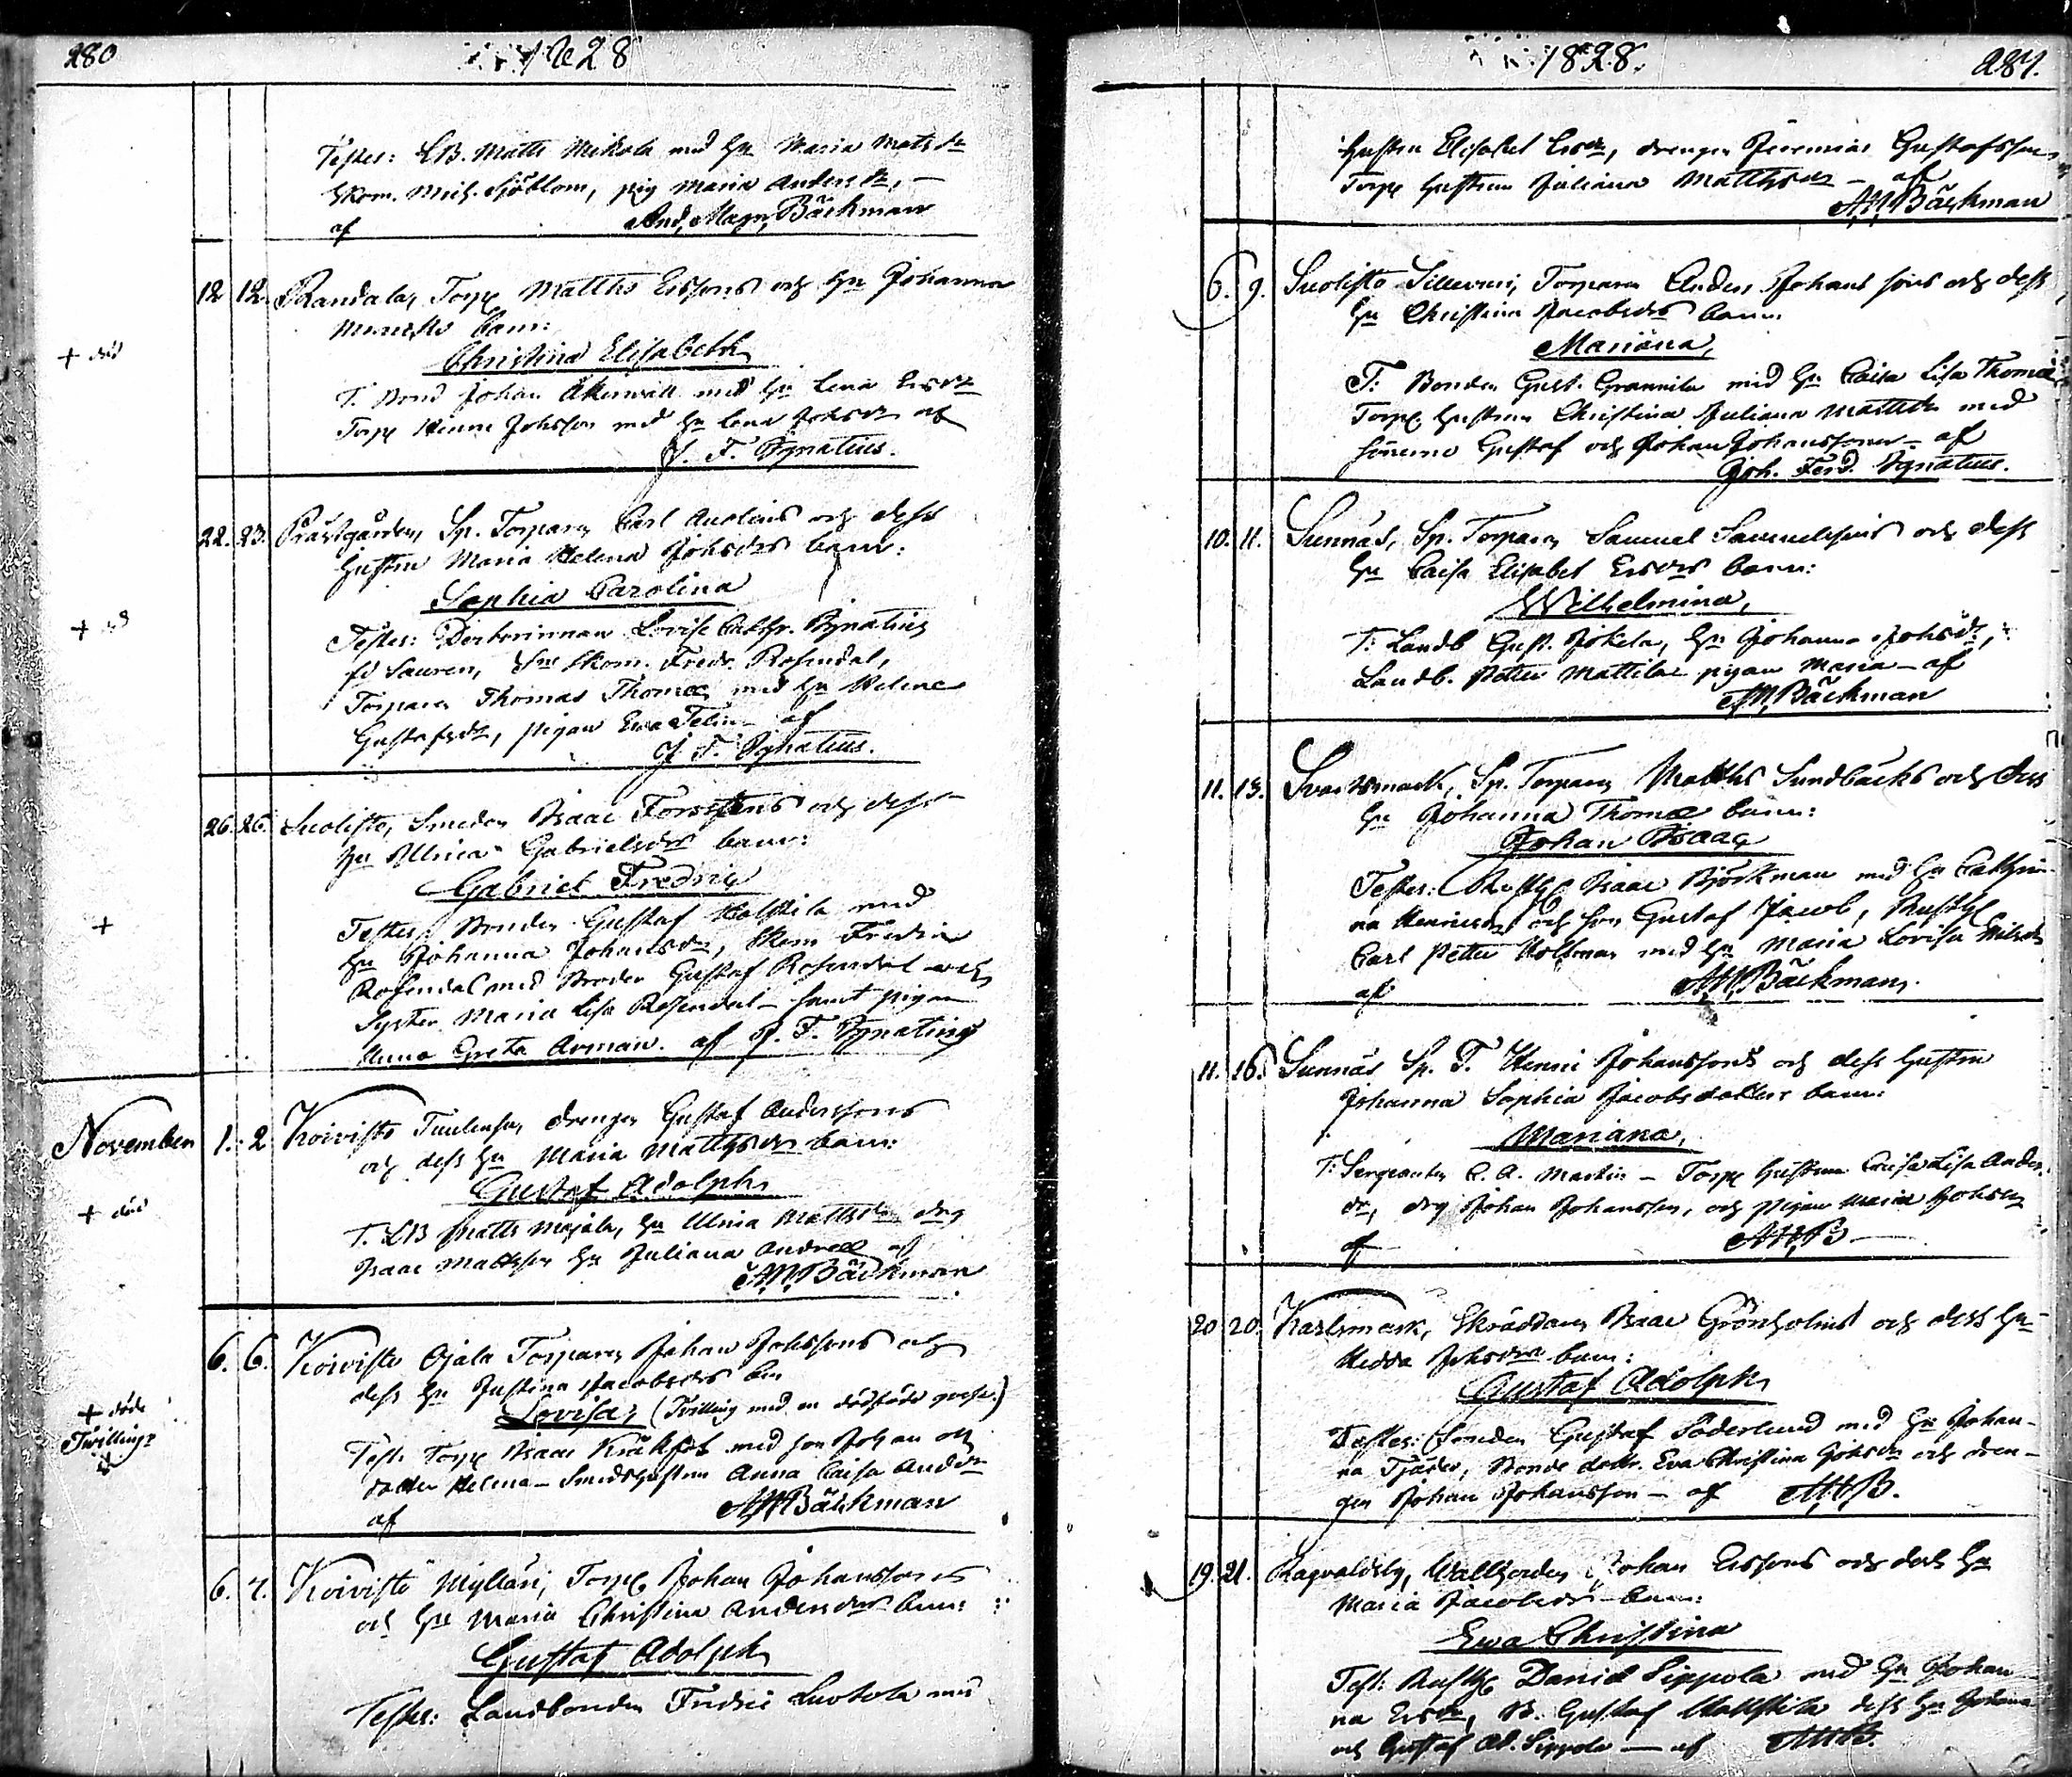 280
1828
Testes: LB. Matts Mikola med hu Maria Mats dr
Skom. Mich. Sjöblom, pig Maria Anders dr, –
af And. Magn. Bäckman
12 12. Torp Matths Ersons och hu Johanna
barn:
+ död
Christina Elisabeth
T. Bond Johan Åkerwall med hu Lena Ersdr
Torp Henric Johsson med hu Lena Johsdr af
J. F. Ignatius.
22. 23. Prästgården, Sp. Torparen Carl och dess
hustru Maria Helena Johsdrs barn:
Sophia Carolina
+
Testes: Lovisa Cathr. Ignatius
fd Skom. Fredr. Rosendal,
Torparen Thomas Thomæ med hu Helena
Gustafsdr, pigan Ewa af
J. F. Ignatius.
26. 26. Suolisto, Smeden Isaac Forsstens och dess
hu Ulrica Gabrielsdrs barn:
Gabriel Fredric
+
Testes Bonden Gustaf med
hu Johanna Johansdr, Skom Fredric
Rosendal med Broder Gustaf Rosendal och
Syster Maria Lisa Rosendal – samt pigan
Anna Greta Arman. af J. F. Ignatius
November 1. 2 Koivisto drengen Gustaf Anderssons
och dess hu Maria Matthsdrs barn:
Gustaf Adolph
+ död
T. LB Matts Majala, hu Ulrica Matthsdr drg
Isaac Mattsson hu Juliana Andreæ af
A. M. Bäckman
6. 6. Koivisto Ojala Torparen Johan Johssons och
dess hu Justina Jacobsdrs bn
Lovisa, (Tvilling med en dödfödd gosse.)
+ döde
Twillingr
Test: Torp Isaac med son Johan och
dotter Helena – Smedshustrun Anna Caisa Andersdr
af AMBäckman
6. 7. Koivisto Mylläri, Torp Johan Johanssons
och hu Maria Christina Andersdrs barn:
Gustaf Adolph
Testes: Landbonden Fredric med
1828.
281.
hustru Elisabet Ersdr, drengen Jeremias Gustafsson
Torp hustrun Juliana Matthsdr – af
A. M. Bäckman
6. 9. Suolisto Torparen Anders Johanssons och dess
hu Christina Jacobsdrs barn
Mariana,
T: Bonden Gust. Grannila med hu Caisa Lisa Thomæ
Torp. hustrun Christina Juliana Mattsdr med
sönerne Gustaf och Johan Johanssoner – af
Joh. Ferd. Ignatius.
10. 11. Sunnäs, Sp. Torparen Samuel Samuelssons och dess
hu Caisa Elisabet Ersdrs barn:
Wilhelmina,
T: Landb Gust. Jokela, hu Johanna Johsdr,
Landb. Petter Mattila pigan Maria – af
A. M. Bäckman
11. 13. Svartsmark, Sp. Torparen Matths Sundbäcks och dess
hu Johanna Thomæ barn:
Johan Isaac
Testes: Rusth Isaac Björkman med hu Cathri-
na Henricsdr och son Gustaf Jacob, Rusth
Carl Petter Holkman med hu Maria Lovisa Nilsdr
af A. M. Bäckman.
11. 16. Sunnäs Sp. T. Henric Johanssons och dess hustru
Johanna Sophia Jacobsdotters barn:
Mariana,
T: Sergeanten C. A. Martin – Torp hustrun Caisa Lisa Anders
dr, drg Johan Johansson, och pigan Maria Johsdr
af A. M. B –
20 20. Karlsmark, Skräddaren Isaac Grönholms och dess hu
Hedda Johsdrs barn:
Gustaf Adolph
Testes: Smeden Gustaf Söderlund med hu Johan-
na Tjäder, Bonde dottr. Eva Christina Göhsdr och dren-
gen Johan Johansson – af A. M. B.
19. 21. Ragvaldsby, Wallherden Johan Ersons och dess hu
Maria Jacobsdrs barn:
Ewa Christina
Test: Rusth David Sippola med hu Johan
na Ersdr, B. Gustaf dess hu Johanna
och Gustaf Ad. Sippola – af A. M. B.